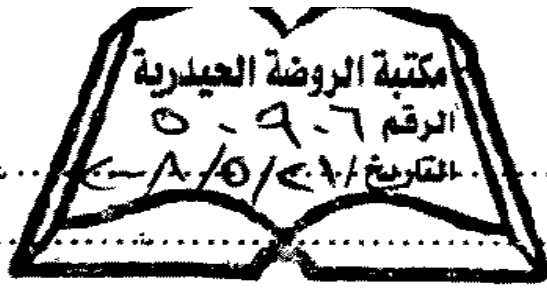 مكتبة الروضة الحيدرية
الرقم ٥٠٩٠٦
التاريخ